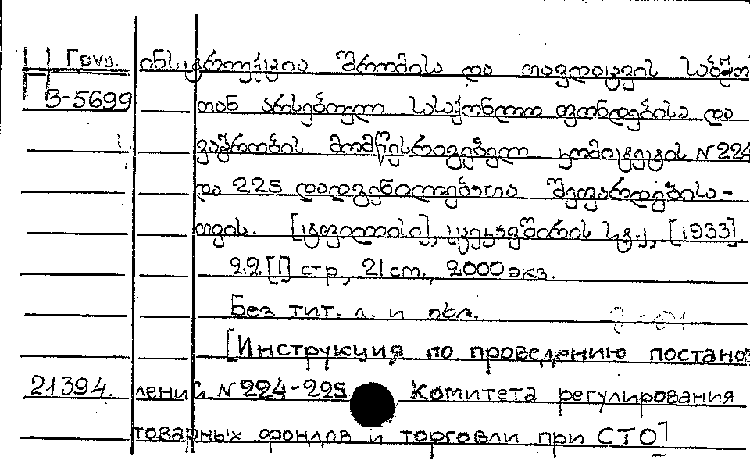 Груз. ინსტრუქცია შრომისა და თავდაცვის საბჭო
В-5699 თან არსებულ სასაქონლო ფონდებისა და
ვაჭრობის მომწესრიგებელ კომიტეტის N 224
და 225 დადგენილებათა შეფარდებისა-
თვის. [ტფილისი], ცეკავშირის სტ., [1933].
22 [1] стр, 21 cm., 2000 экз.
Без тит. л. и обл.
[Инструкция по проведению постанов
21394. лений N 224-225 Комитета регулирования
товарных фондов и торговли при СТО]